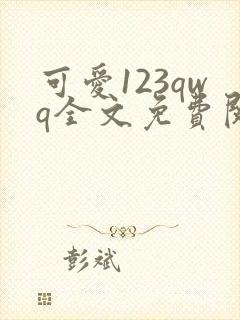 可愛123qw
q全文免費閱
彭斌